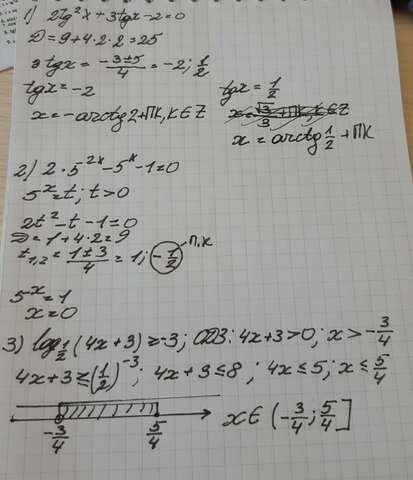 1) 2tg²x + 3tgx - 2 = 0
D = 9 + 4·2·2 = 25
tgx = (-3±5)/4 = -2; 1/2
tgx = -2 tgx = 1/2
x = -arctg2 + πk, k ∈ Z
x = arctg 1/2 + πk
2) 2·5^(2x) - 5^x - 1 = 0
5^x = t; t > 0
2t² - t - 1 = 0
D = 1 + 4·2 = 9
t₁,₂ = (1±3)/4 = 1; -1/2 п.к
5^x = 1
x = 0
3) log_(1/2) (4x + 3) ≥ -3; ОДЗ: 4x + 3 > 0; x > -3/4
4x + 3 ≤ (1/2)^(-3); 4x + 3 ≤ 8; 4x ≤ 5; x ≤ 5/4
-3/4 5/4 x ∈ (-3/4; 5/4]